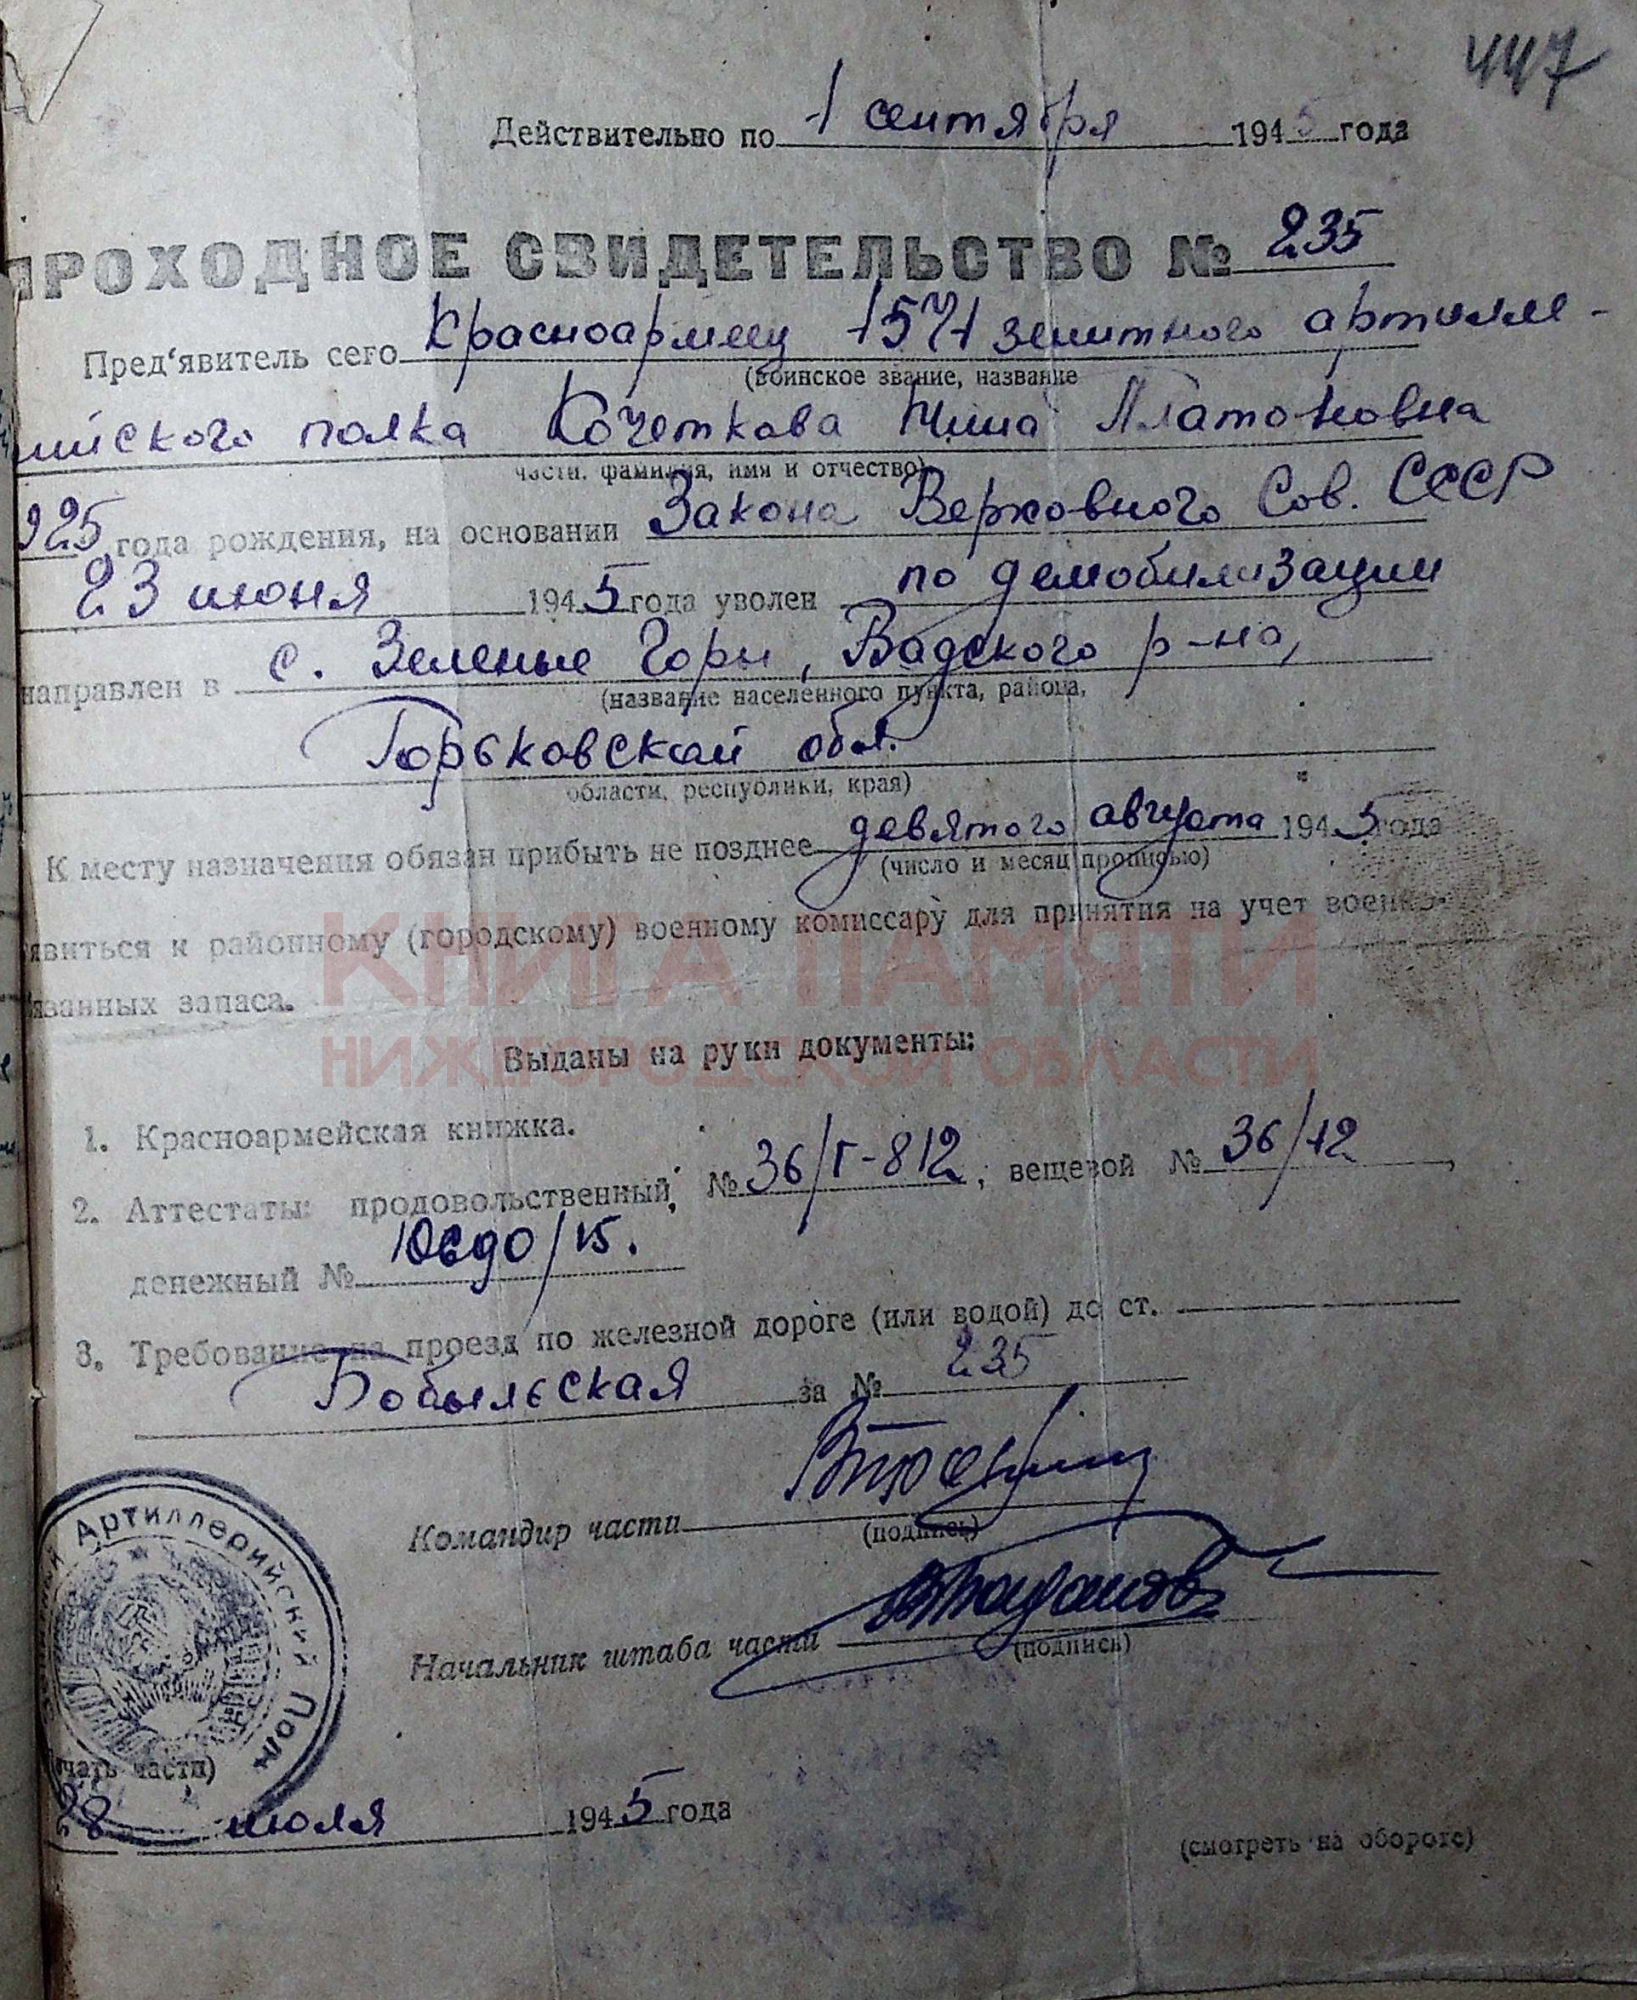 447
Действительно по 1 сентября 1945 года
ПРОХОДНОЕ СВИДЕТЕЛЬСТВО № 235
Пред‘явитель сего Красноармеец 1571 зенитного артилле-
(воинское звание, название
ийского полка Кочеткова Нина Платоновна
части, фамилия, имя и отчество)
925 года рождения, на основании Закона Верховного Сов. СССР
23 июня 1945 года уволен по демобилизации
направлен в с. Зеленые Горы, Вадского р-на,
(название населенного пункта, района,
Горьковской обл.
области, республики, края)
К месту назначения обязан прибыть не позднее девятого августа 1945 года
(число и месяц прописью)
явиться к районному (городскому) военному комиссару для принятия на учет военно-
язанных запаса.
КНИГА ПАМЯТИ
НИЖЕГОРОДСКОЙ ОБЛАСТИ
Выданы на руки документы:
1. Красноармейская книжка.
2. Аттестаты: продовольственный, № 36/Г-812; вещевой № 36/12,
денежный №
3. Требование на проезд по железной дороге (или водой) до ст.
Бобыльская за № 235
Командир части
(подпись)
Начальник штаба части
(подпись)
Артиллерийский Полк
чать части)
28 июля 1945 года
(смотреть на обороте)